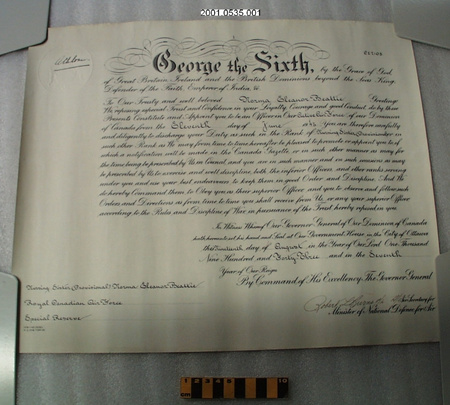 2001.0535.001
George the Sixth, by the Grace of God,
of Great Britain, Ireland and the British Dominions beyond the Seas King,
Defender of the Faith, Emperor of India &c
To Our Trusty and well beloved Norma Eleanor Beattie Greeting
We reposing especial Trust and Confidence in your Loyalty, Courage and good Conduct, do by these
Presents Constitute and Appoint you to be an Officer in Our Active Air Force of our Dominion
of Canada from the Eleventh day of June 1942 You are therefore carefully
and diligently to discharge your Duty as such in the Rank of Nursing Sister, Provisional or in
such other Rank as We may from time to time hereafter be pleased to promote or appoint you to, of
which a notification will be made in the Canada Gazette, or in such other manner as may for
the time being be prescribed by Us in Council, and you are in such manner and on such occasions as may
be prescribed by Us to exercise and well discipline both the inferior Officers and other ranks serving
under you and use your best endeavours to keep them in good Order and Discipline. And We
do hereby Command them to Obey you as their superior Officer and you to observe and follow such
Orders and Directions as from time to time you shall receive from Us, or any your superior Officer
according to the Rules and Discipline of War in pursuance of the Trust hereby reposed in you.
In Witness Whereof Our Governor General of Our Dominion of Canada
hath hereunto set his hand and Seal at Our Government House in the City of Ottawa
this Nineteenth day of August in the Year of Our Lord One Thousand
Nine Hundred and Forty Three and in the Seventh
Year of Our Reign
By Command of His Excellency The Governor General
Nursing Sister (Provisional) Norma Eleanor Beattie
Royal Canadian Air Force
Special Reserve
Minister of National Defence for Air
CM 1 2 3 4 5 10